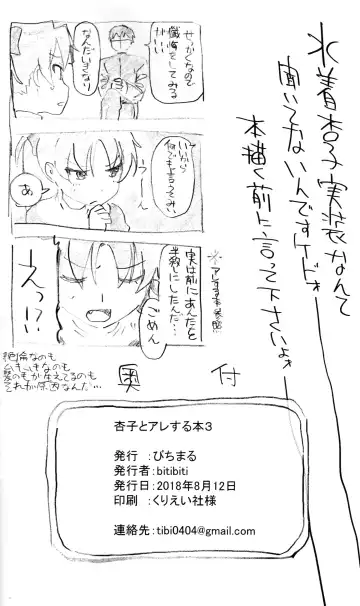 水着杏子実装なんて
聞いてないんですけドォ
本描く前に言って下さいよォ
せっかくなので
懺悔をしてみる
がいい
なんだいきなり
いいから
うーん
あ
※アレする本参照
実は前にあんたを
半殺しにしたんだ…
ごめん
えっ!?
絶倫なのも
髪のもが生えてるのも
それが原因なんだ…
奥付
杏子とアレする本3
発行 :びちまる
発行者:bitibiti
発行日:2018年8月12日
印刷 :くりえい社様
連絡先:tibi0404@gmail.com